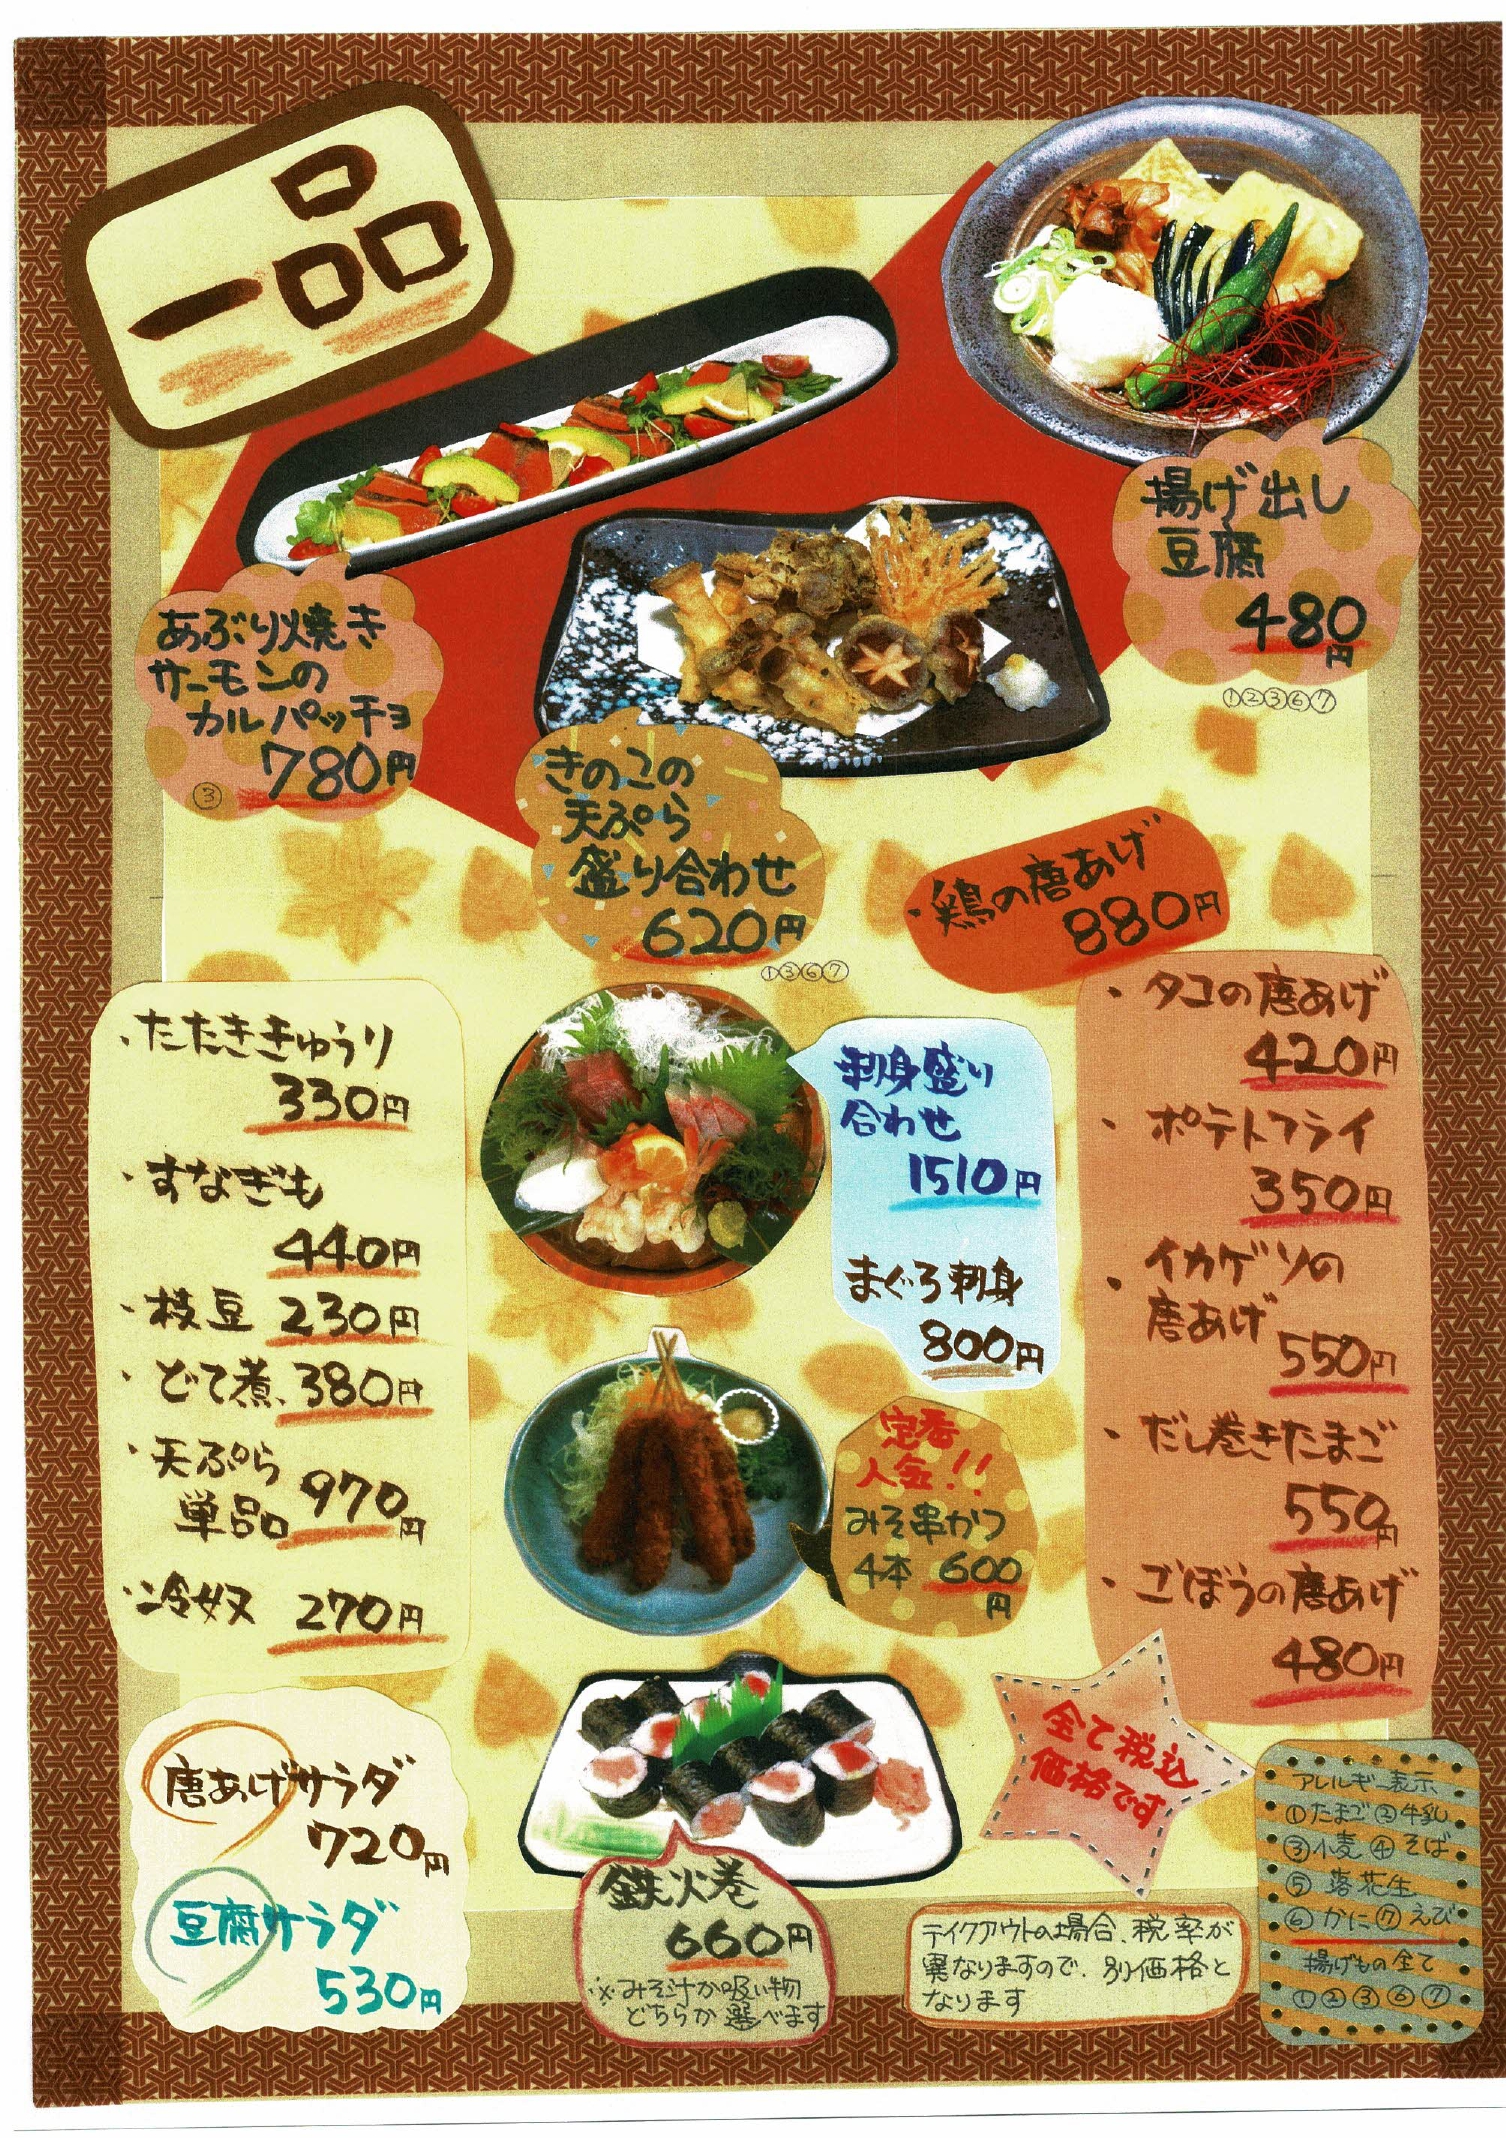 一品
揚げ出し
豆腐
480
円
①②③⑥⑦
あぶり焼き
サーモンの
カルパッチョ
780円
③
きのこの
天ぷら
盛り合わせ
620円
①③⑥⑦
・鶏の唐あげ
880円
・たたききゅうり
330円
・すなぎも
440円
・枝豆 230円
・どて煮 380円
・天ぷら
単品 970円
・冷奴 270円
刺身盛り
合わせ
1510円
まぐろ刺身
800円
定番
人気!!
みそ串かつ
4本 600
円
・タコの唐あげ
420円
・ポテトフライ
350円
・イカゲソの
唐あげ
550円
・だし巻きたまご
550円
・ごぼうの唐あげ
480円
唐あげサラダ
720円
豆腐サラダ
530円
鉄火巻
660円
※みそ汁か吸い物
どちらか選べます
全て税込
価格です
テイクアウトの場合、税率が
異なりますので、別価格と
なります
アレルギー表示
①たまご②牛乳
③小麦④そば
⑤落花生
⑥かに⑦えび
揚げもの全て
①②③⑥⑦